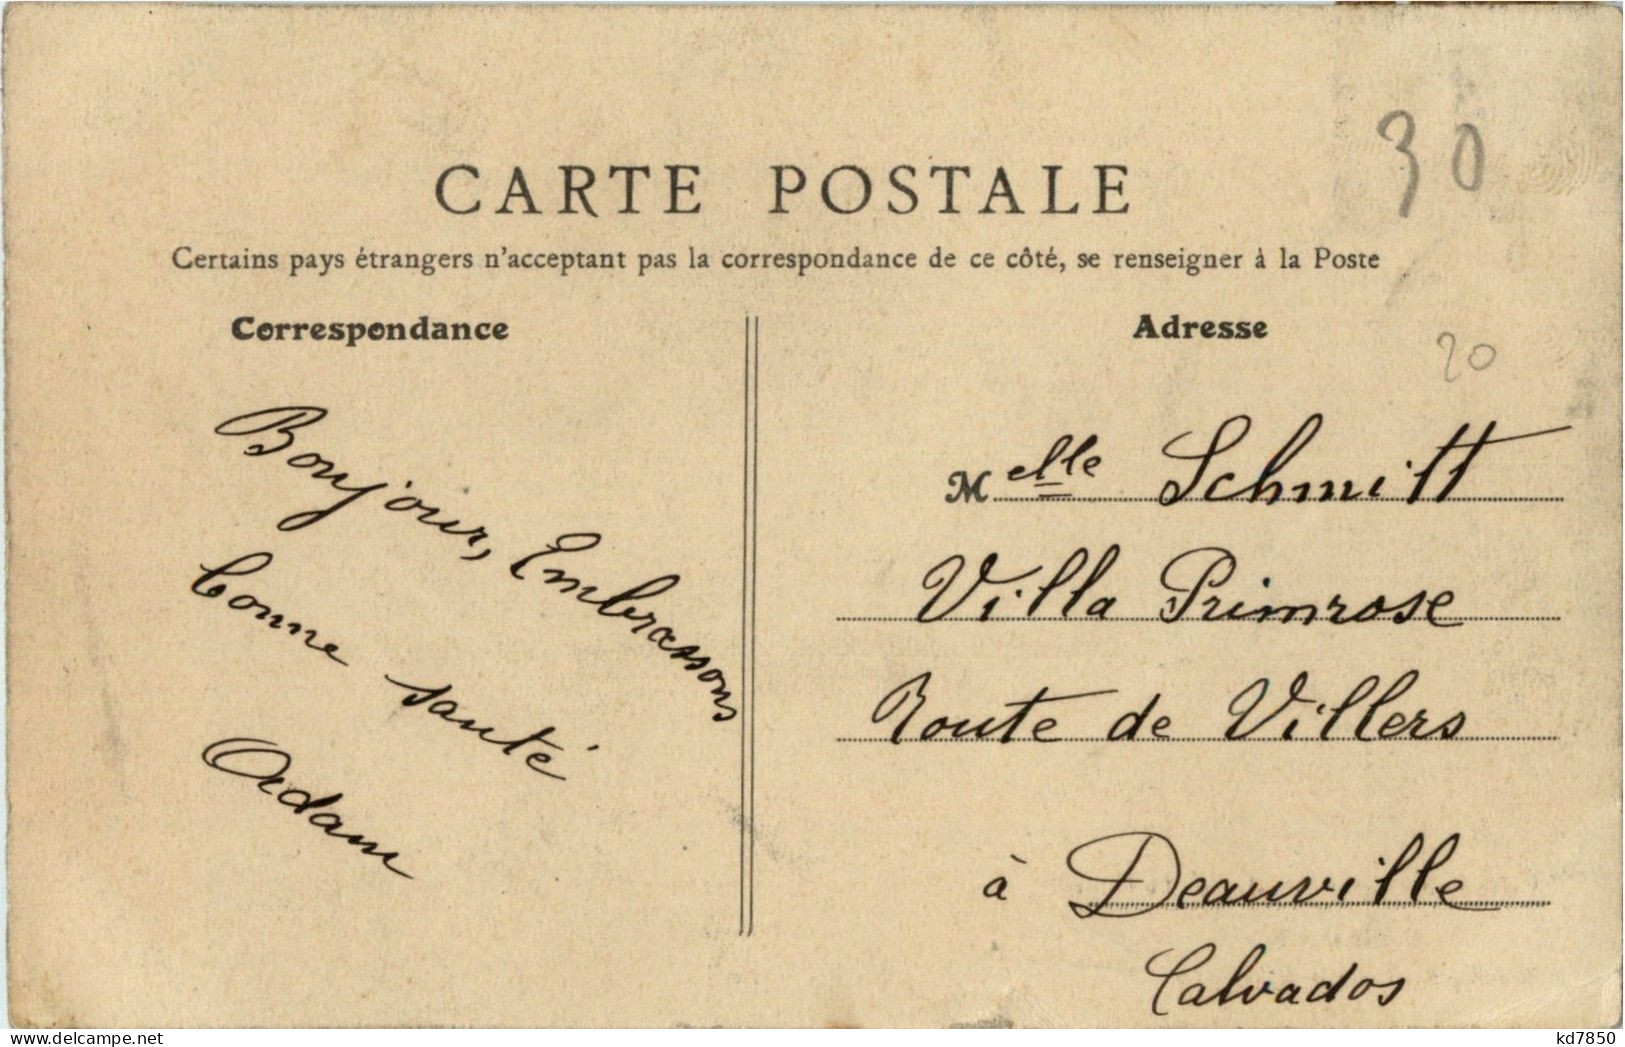 30
CARTE POSTALE
Certains pays étrangers n'acceptant pas la correspondance de ce côté, se renseigner à la Poste
Correspondance
Bonjour, Embrassons
bonne santé
Adam
Adresse
20
Melle Schmitt
Villa Primrose
Route de Villers
à Deauville
Calvados
delcampe.net
kd7850